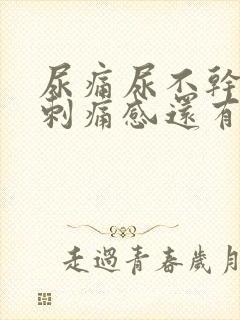 尿痛尿不幹
刺痛感還有
走過青春歲月